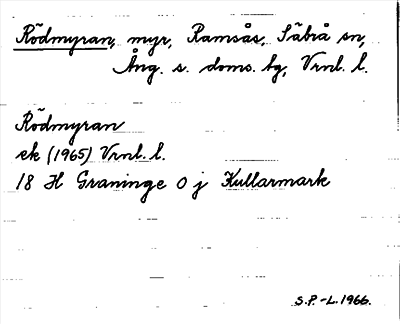 Rödmyran, myr, Ramsås, Säbrå sn,
Ång. s. doms. hg, Vrnl. l.
Rödmyran
ek (1965) Vrnl. l.
18 H Graninge O j Kullarmark
S.P.-L. 1966.